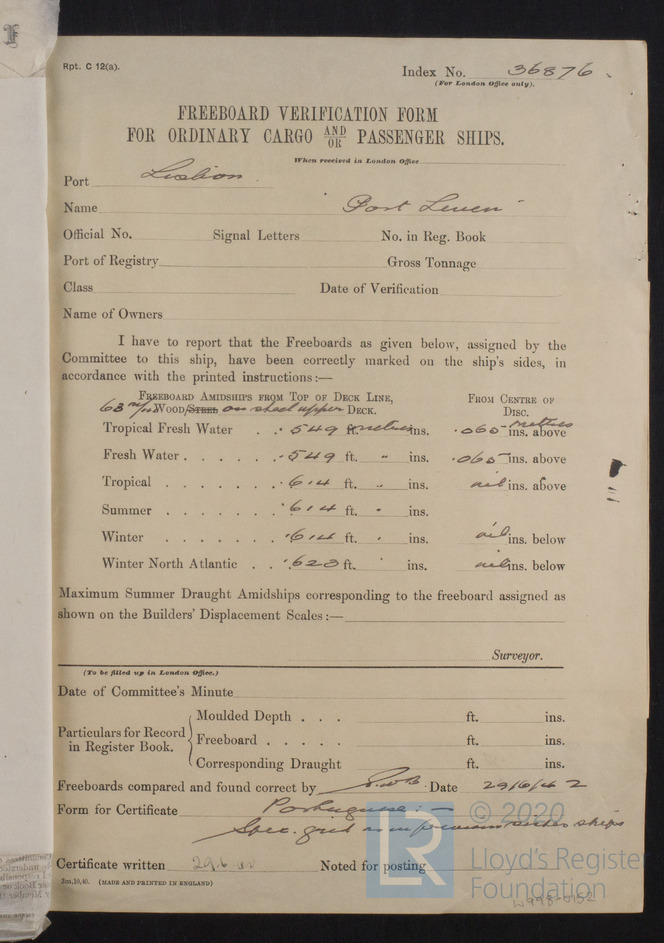 Rpt. C 12(a).
Index No. 36876
(For London Office only).
FREEBOARD VERIFICATION FORM
FOR ORDINARY CARGO AND/OR PASSENGER SHIPS.
When received in London Office
Port Lisbon
Name "Port Leven"
Official No. Signal Letters No. in Reg. Book
Port of Registry Gross Tonnage
Class Date of Verification
Name of Owners
I have to report that the Freeboards as given below, assigned by the
Committee to this ship, have been correctly marked on the ship's sides, in
accordance with the printed instructions:—
Freeboard Amidships from Top of Deck Line, From Centre of
63 m/m Wood/Steel on steel upper Deck. Disc.
Tropical Fresh Water . . .549 ft. metres ins. .065 metres ins. above
Fresh Water . . . . . . . .549 ft. " ins. .065 ins. above
Tropical . . . . . . . .614 ft. " ins. nil ins. above
Summer . . . . . . . .614 ft. " ins.
Winter . . . . . . . .614 ft. " ins. nil ins. below
Winter North Atlantic . . .623 ft. " ins. nil ins. below
Maximum Summer Draught Amidships corresponding to the freeboard assigned as
shown on the Builders' Displacement Scales:—
Surveyor.
(To be filled up in London Office.)
Date of Committee's Minute
Particulars for Record in Register Book.
Moulded Depth . . . ft. ins.
Freeboard . . . . . ft. ins.
Corresponding Draught ft. ins.
Freeboards compared and found correct by Date 29/6/42
Form for Certificate Portuguese:—
Spec. grid as in previous sister ships
Certificate written 29.6 Noted for posting
2m,10,40. (MADE AND PRINTED IN ENGLAND)
LR © 2020
Lloyd's Register
Foundation
W998-0152